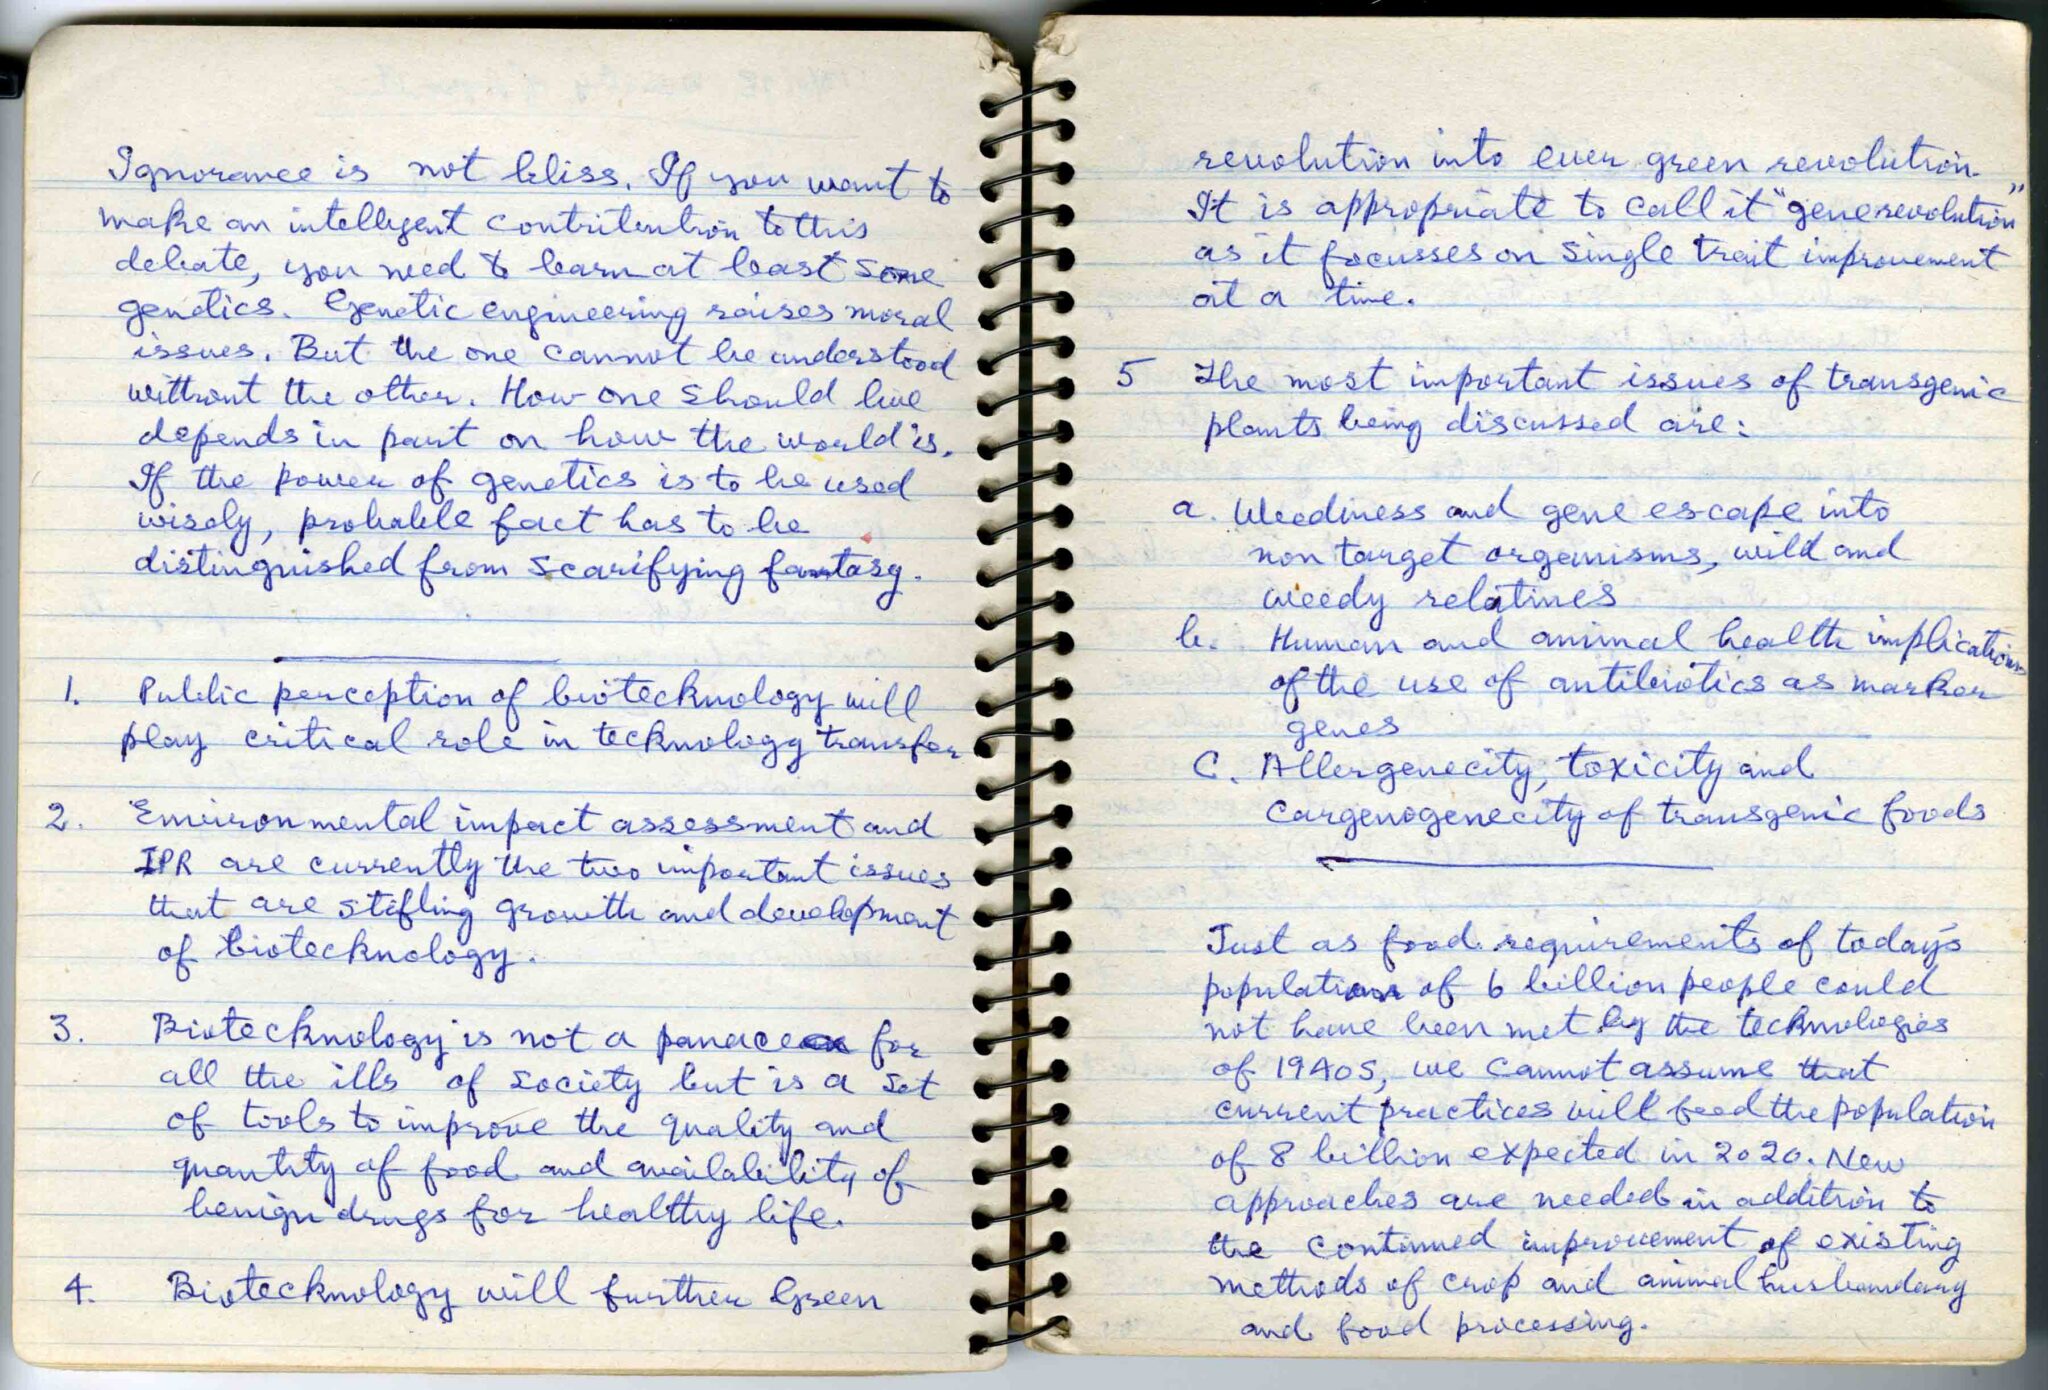 Ignorance is not bliss. If you want to
make an intelligent contribution to this
debate, you need to learn at least some
genetics. Genetic engineering raises moral
issues. But the one cannot be understood
without the other. How one should live
depends in part on how the world is.
If the power of genetics is to be used
wisely, probable fact has to be
distinguished from scarifying fantasy.
1. Public perception of biotecknology will
play critical role in tecknology transfer
2. Environmental impact assessment and
IPR are currently the two important issues
that are stifling growth and development
of biotecknology.
3. Biotecknology is not a panacea for
all the ills of society but is a set
of tools to improve the quality and
quantity of food and availability of
benign drugs for healthy life.
4. Biotecknology will further Green
revolution into ever green revolution.
It is appropriate to call it "generevolution"
as it focusses on single trait improvement
at a time.
5 The most important issues of transgenic
plants being discussed are:
a. Weediness and gene escape into
non target organisms, wild and
weedy relatives
b. Human and animal health implications
of the use of antibiotics as marker
genes
C. Allergenecity, toxicity and
Cargenogenecity of transgenic foods
Just as food requirements of today's
population of 6 billion people could
not have been met by the tecknologies
of 1940s, we cannot assume that
current practices will feed the population
of 8 billion expected in 2020. New
approaches are needed in addition to
the continued improvement of existing
methods of crop and animal husbandary
and food processing.